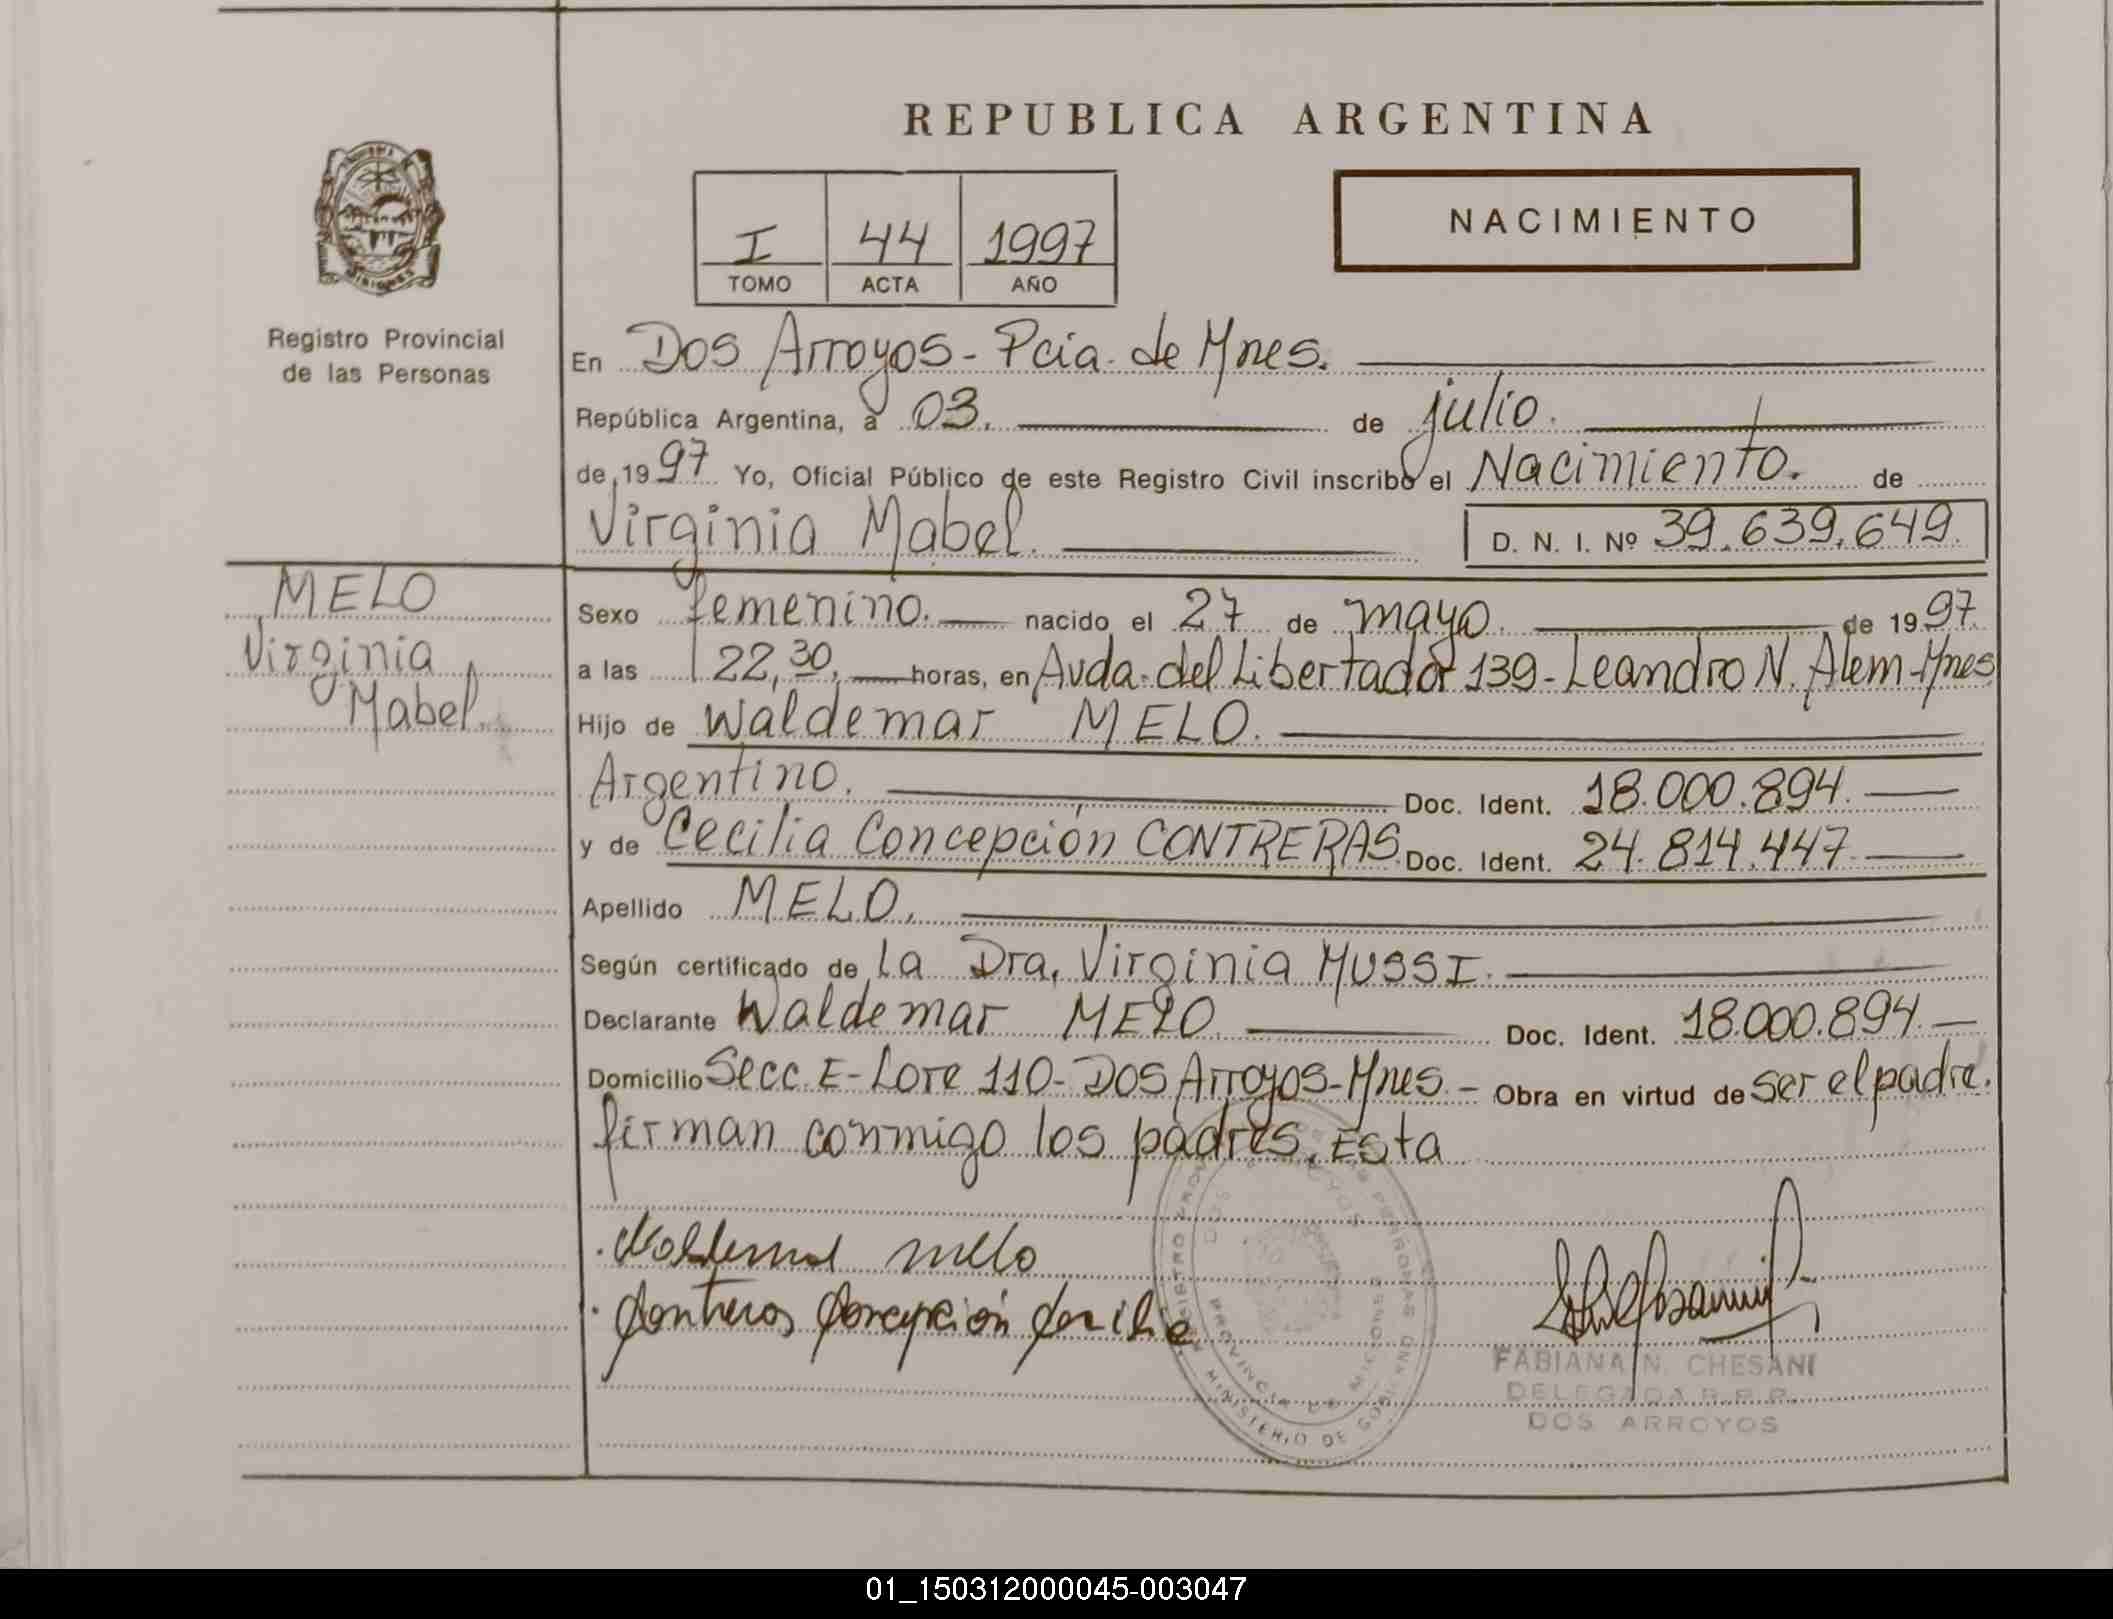 REPUBLICA ARGENTINA
NACIMIENTO
I 44 1997
TOMO ACTA AÑO
Registro Provincial
de las Personas
En Dos Arroyos - Pcia. de Mnes.
República Argentina, a 03. de julio.
de 1997 Yo, Oficial Público de este Registro Civil inscribo el Nacimiento. de
Virginia Mabel. D. N. I. Nº 39.639.649.
MELO
Virginia
Mabel.
Sexo femenino. nacido el 27 de mayo. de 1997.
a las 22,30, horas, en Avda. del Libertador 139 - Leandro N. Alem - Mnes
Hijo de Waldemar MELO.
Argentino. Doc. Ident. 18.000.894.
y de Cecilia Concepción CONTRERAS. Doc. Ident. 24.814.447.
Apellido MELO.
Según certificado de la Dra. Virginia MUSSI.
Declarante Waldemar MELO. Doc. Ident. 18.000.894.
Domicilio Secc. E - Lote 110 - Dos Arroyos - Mnes. - Obra en virtud de ser el padre.
firman conmigo los padres. Esta
Waldemar melo
Contreras Concepción Cecilia
PROVINCIA DE MISIONES
MINISTERIO DE GOBIERNO
FABIANA N. CHESANI
DELEGADA R.P.P.
DOS ARROYOS
01_150312000045-003047